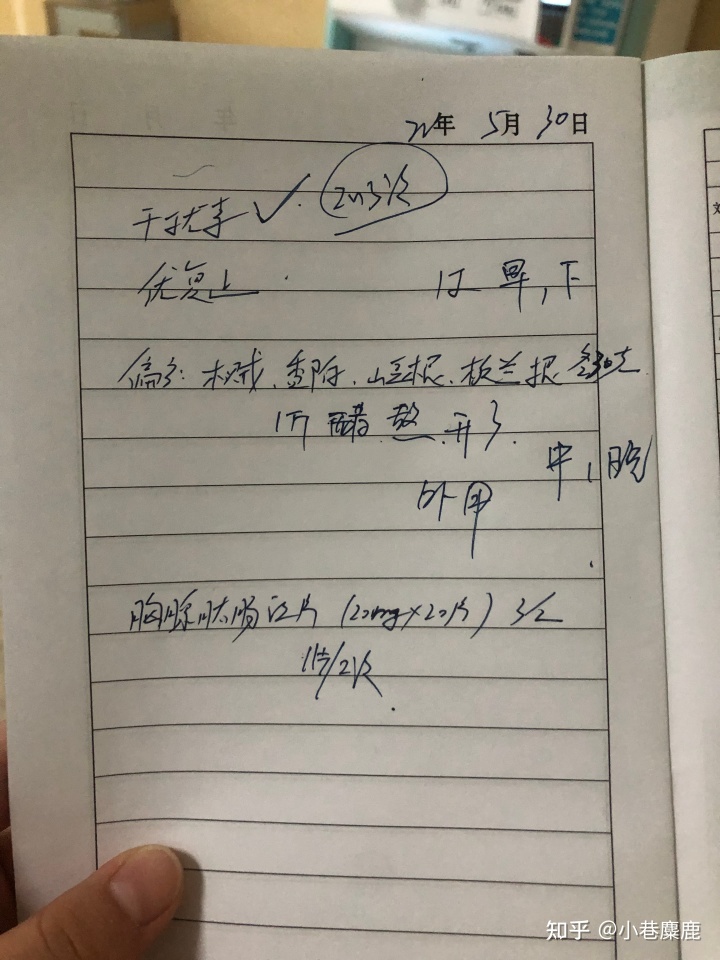 22年 5月 30日
干扰素 ✓. 2~3次
优复止 . 早, 下
偏方: 木贼、香附、山豆根、板兰根 各30克
醋 敷 开了
中, 晚
外用
胸腺肽肠溶片 (20mg×20片) 3/2
1片/2次
知乎 @小巷麋鹿